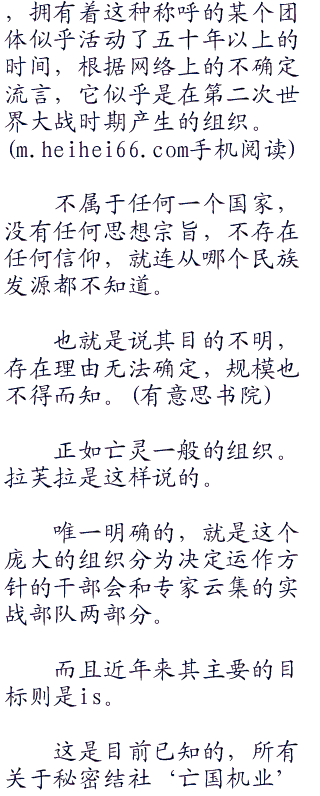 ，拥有着这种称呼的某个团
体似乎活动了五十年以上的
时间，根据网络上的不确定
流言，它似乎是在第二次世
界大战时期产生的组织。
(m.heihei66.com手机阅读)
不属于任何一个国家，
没有任何思想宗旨，不存在
任何信仰，就连从哪个民族
发源都不知道。
也就是说其目的不明，
存在理由无法确定，规模也
不得而知。(有意思书院)
正如亡灵一般的组织。
拉芙拉是这样说的。
唯一明确的，就是这个
庞大的组织分为决定运作方
针的干部会和专家云集的实
战部队两部分。
而且近年来其主要的目
标则是is。
这是目前已知的，所有
关于秘密结社‘亡国机业’